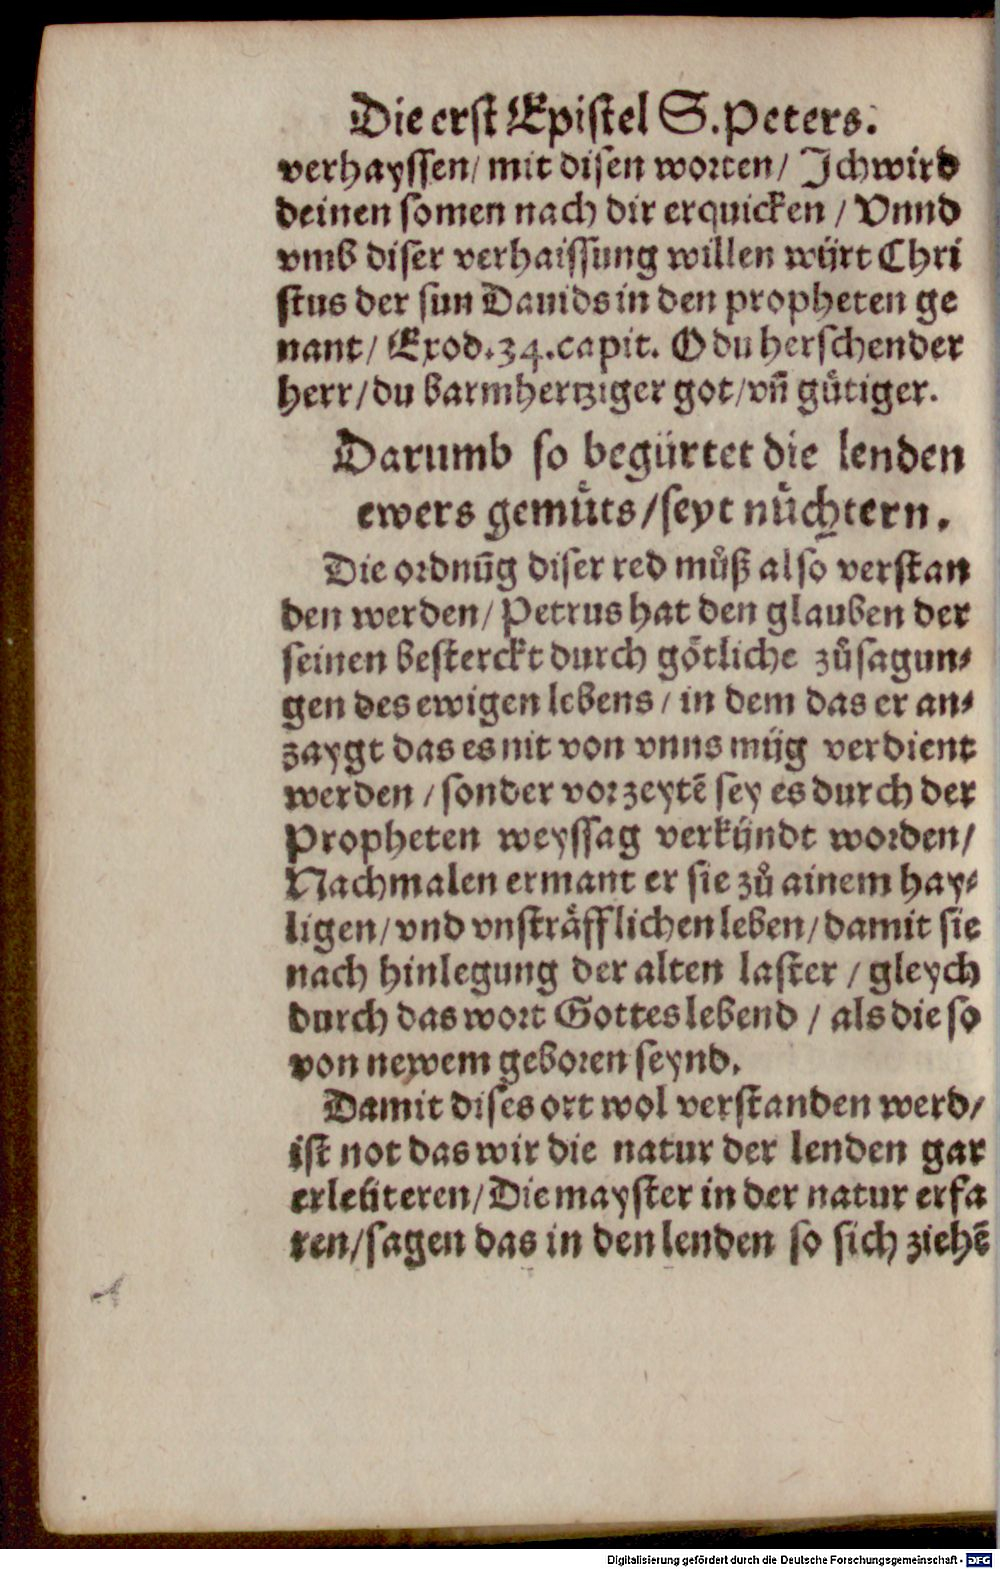 Die erst Epistel S. Peters.
verhayssen/ mit disen worten/ Ich wird
deinen somen nach dir erquicken / Vnnd
vmb diser verhaissung willen würt Chri
stus der sun Dauids in den propheten ge
nant/ Exod. 34. capit. O du herschender
herr/ du barmhertziger got/ vñ gütiger.
Darumb so begürtet die lenden
ewers gemuͤts/ seyt nuͤchtern.
Die ordnūg diser red muͦß also verstan
den werden/ Petrus hat den glauben der
seinen besterckt durch goͤtliche zuͦsagun⸗
gen des ewigen lebens/ in dem das er an⸗
zaygt das es nit von vnns müg verdient
werden / sonder vorzeytē sey es durch der
Propheten weyssag verkündt worden/
Nachmalen ermant er sie zuͦ ainem hay⸗
ligen/ vnd vnstraͤfflichen leben/ damit sie
nach hinlegung der alten laster / gleych
durch das wort Gottes lebend / als die so
von newem geboren seynd.
Damit dises ort wol verstanden werd/
ist not das wir die natur der lenden gar
erleüteren/ Die mayster in der natur erfa
ren/ sagen das in den lenden so sich ziehē
Digitalisierung gefördert durch die Deutsche Forschungsgemeinschaft - DFG